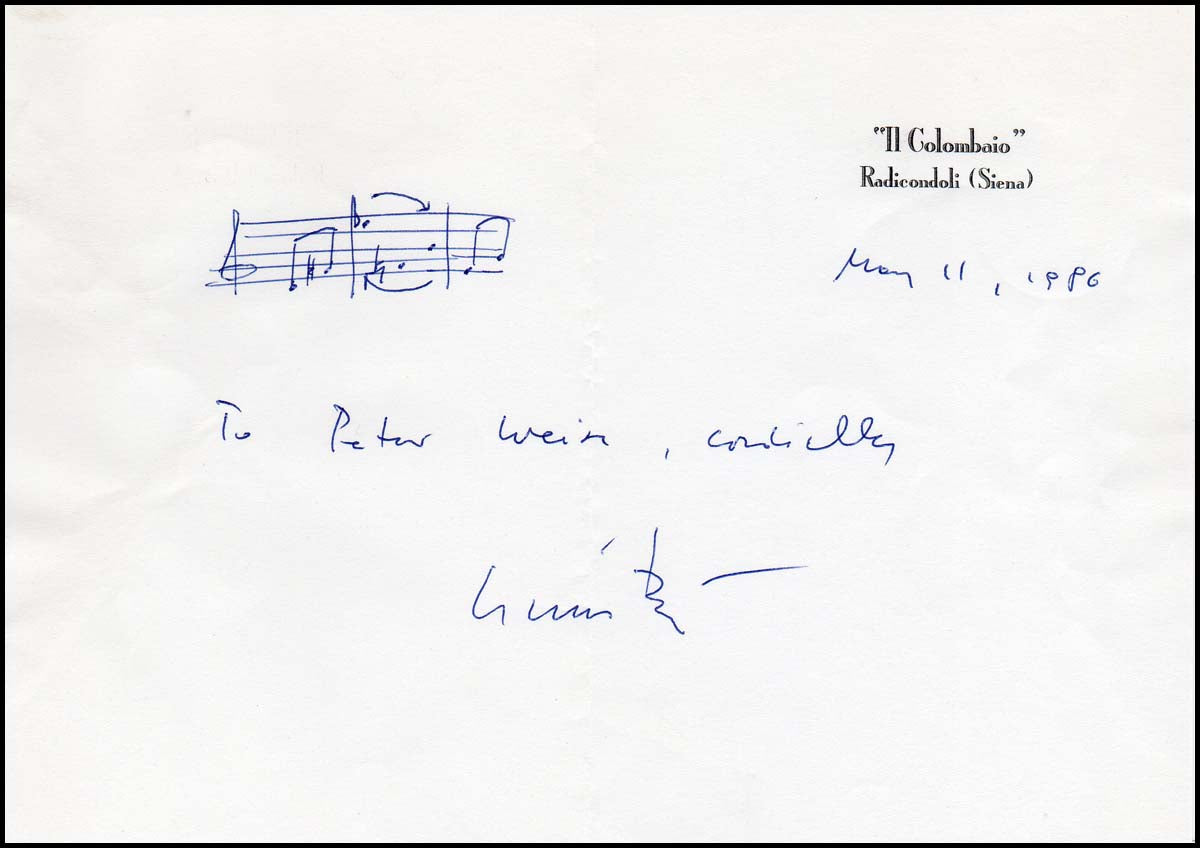 "Il Colombaio"
Radicondoli (Siena)
May 11, 1986
To Peter Weiss, cordially